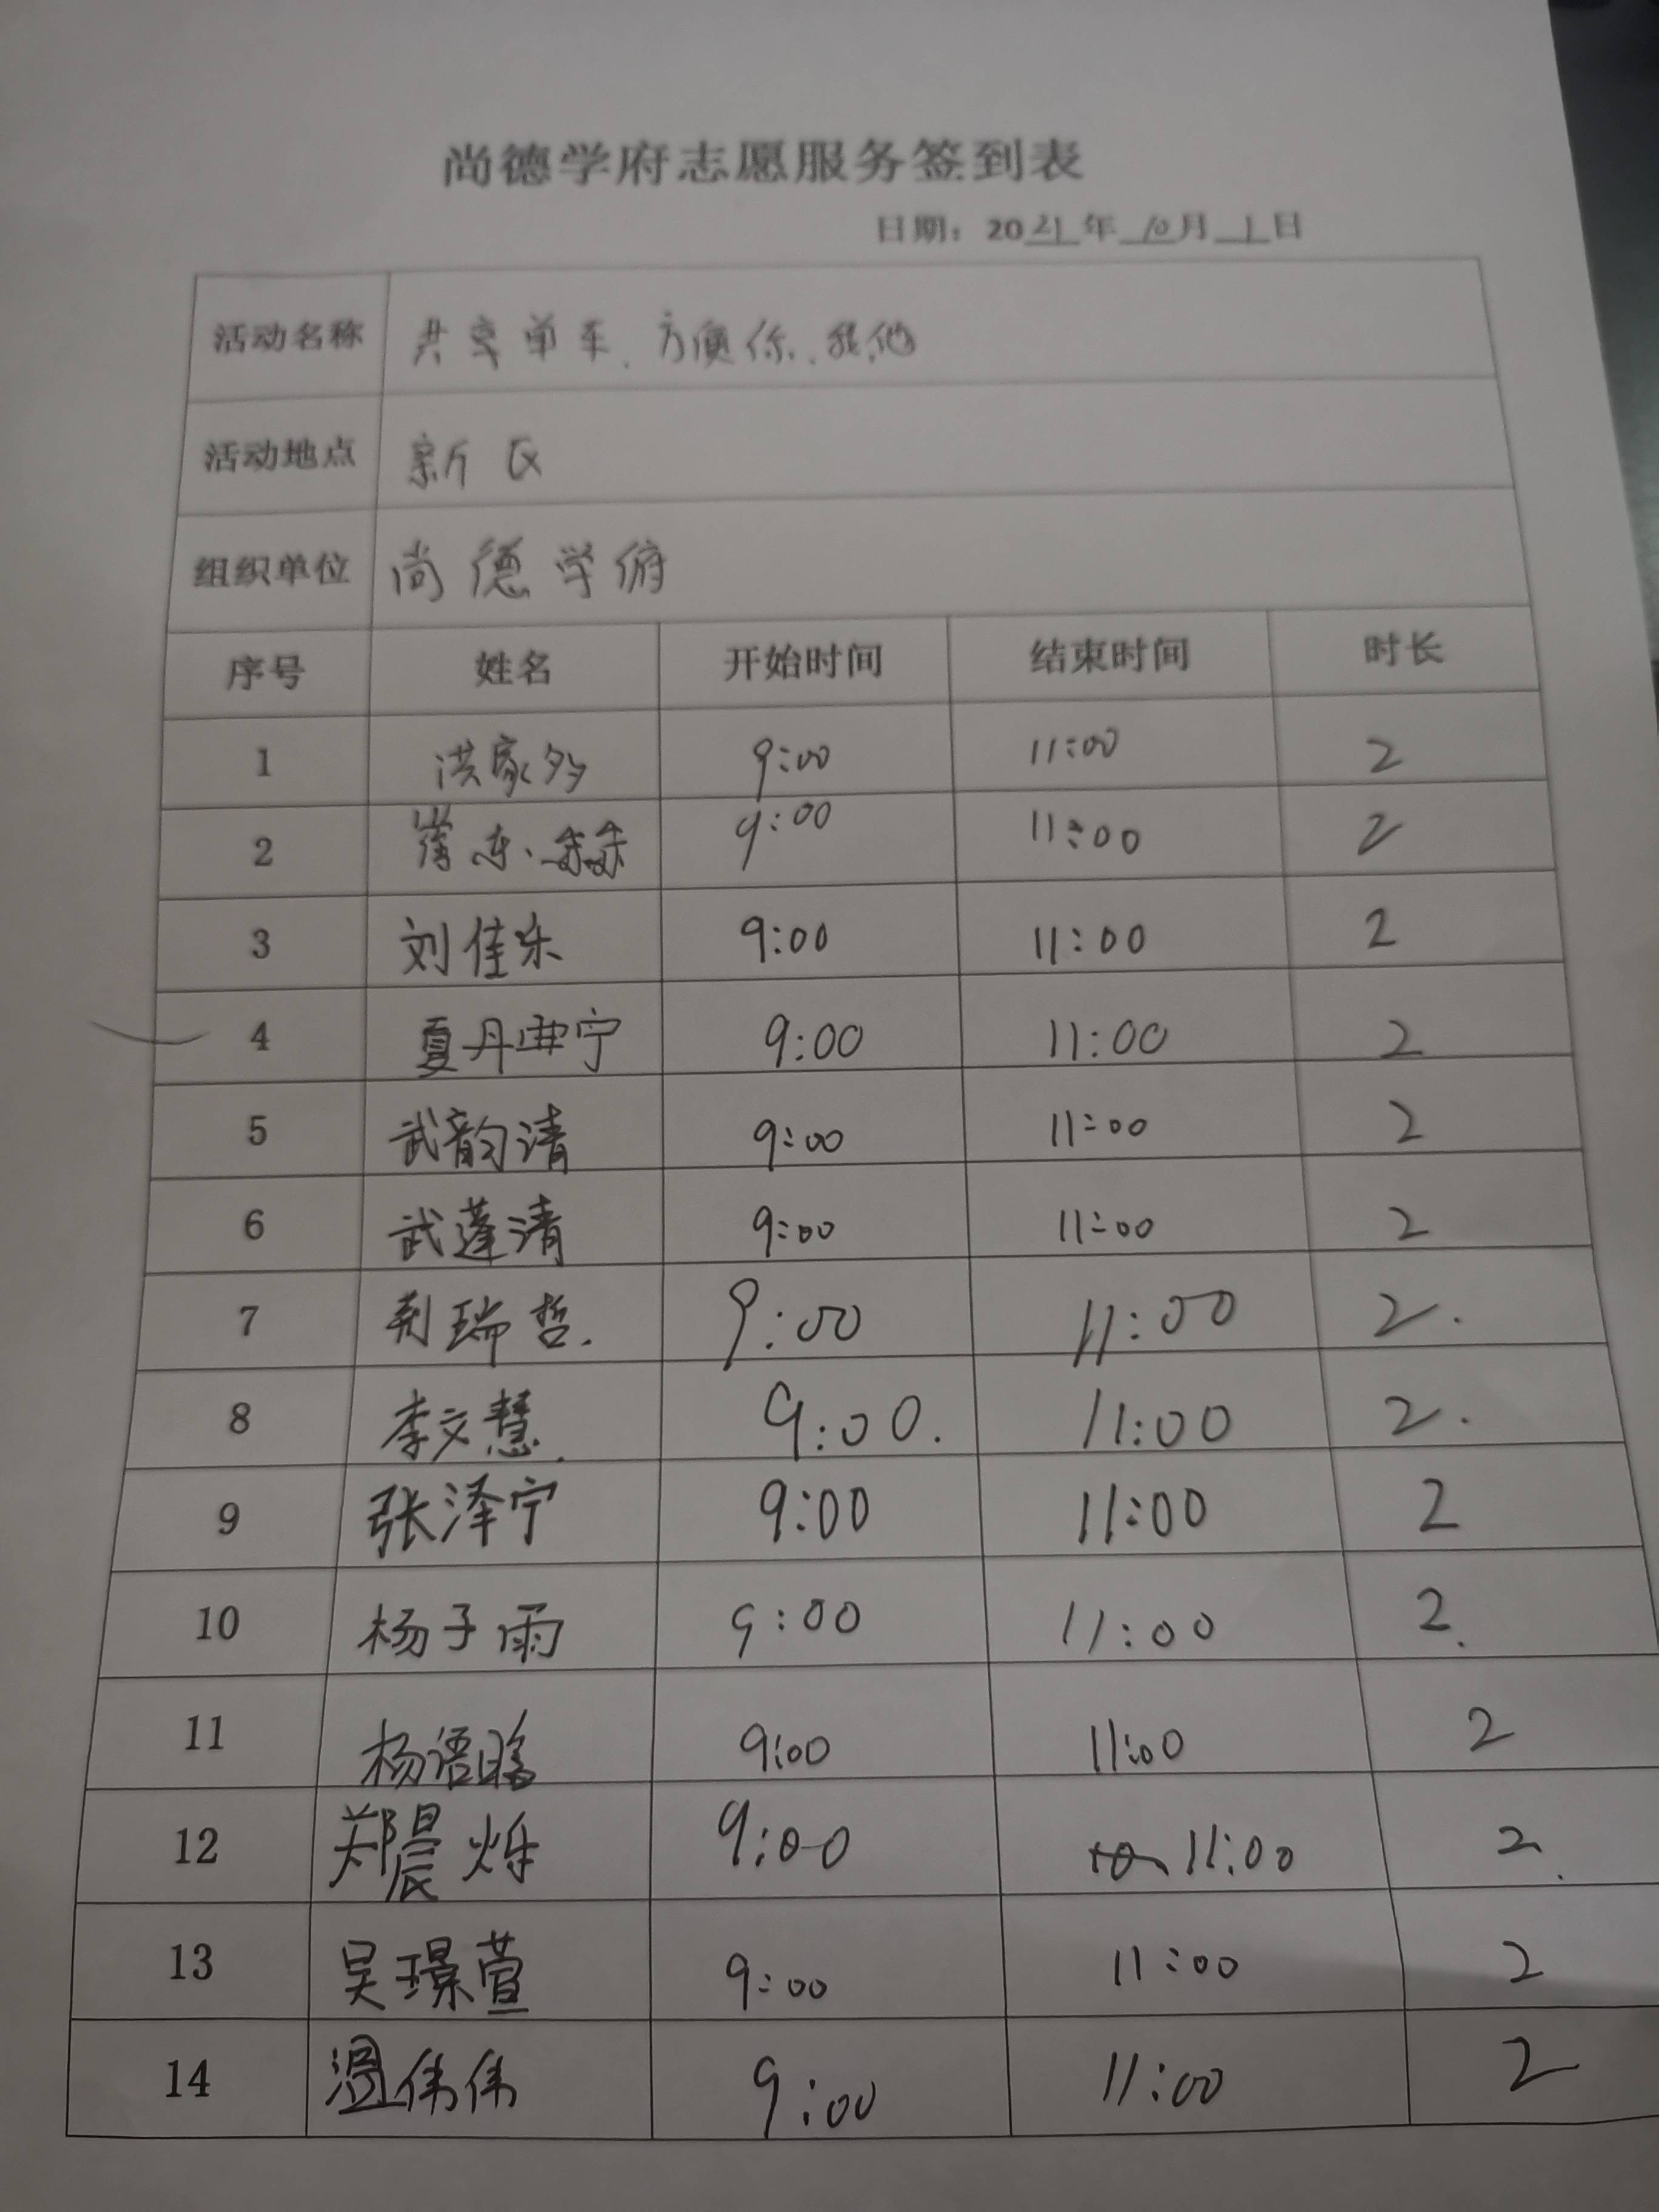 尚德学府志愿服务签到表
日期：2021年10月1日
活动名称 共享单车.方便你.我.他
活动地点 新区
组织单位 尚德学府
序号 姓名 开始时间 结束时间 时长
1 洪家多 9:00 11:00 2
2 9:00 11:00 2
3 刘佳乐 9:00 11:00 2
4 夏丹曲宁 9:00 11:00 2
5 武韵清 9:00 11:00 2
6 武蓬清 9:00 11:00 2
7 荆瑞哲. 9:00 11:00 2.
8 李文慧. 9:00. 11:00 2.
9 张泽宁 9:00 11:00 2
10 杨子雨 9:00 11:00 2.
11 杨语 9:00 11:00 2
12 郑晨烁 9:00 11:00 2.
13 吴璟萱 9:00 11:00 2
14 温伟伟 9:00 11:00 2